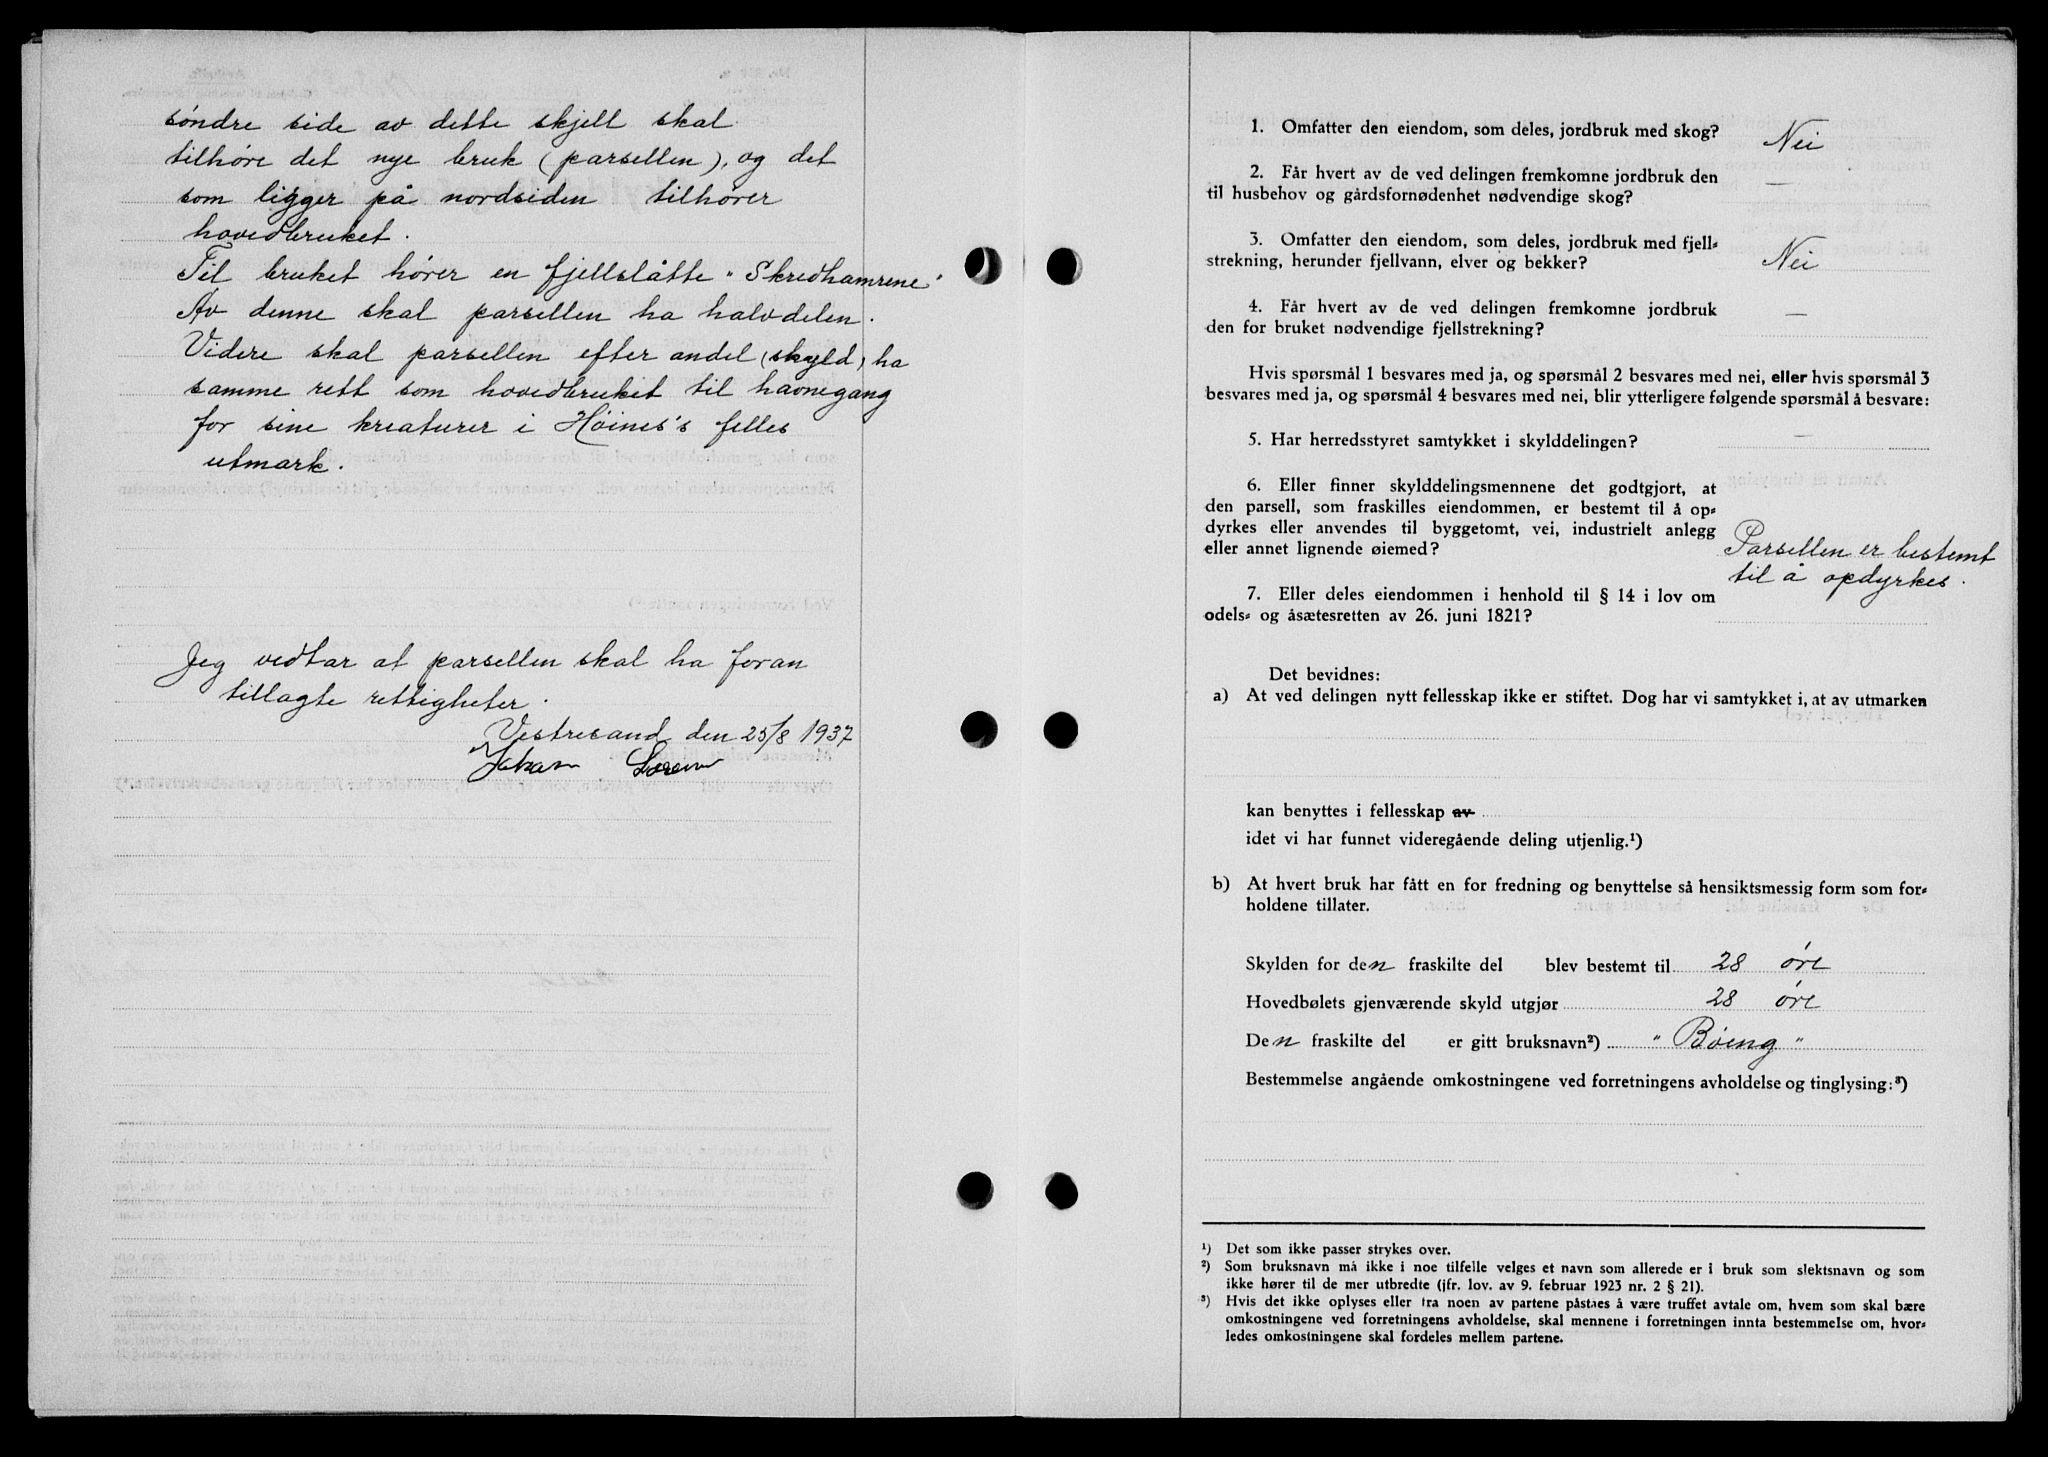 søndre side av dette skjell skal
tilhøre det nye bruk (parsellen), og det
som ligger på nordsiden tilhører
hovedbruket.
Til bruket hører en fjellslåtte "Skredhamrene"
Av denne skal parsellen ha halvdelen.
Videre skal parsellen efter andel (skyld) ha
samme rett som hovedbruket til havnegang
for sine kreaturer i Høines's felles
utmark.
Jeg vedtar at parsellen skal ha foran
tillagte rettigheter.
Vestresand den 25/8 1937
Johan
1. Omfatter den eiendom, som deles, jordbruk med skog?
Nei
2. Får hvert av de ved delingen fremkomne jordbruk den
til husbehov og gårdsfornødenhet nødvendige skog?
—
3. Omfatter den eiendom, som deles, jordbruk med fjell-
strekning, herunder fjellvann, elver og bekker?
Nei
4. Får hvert av de ved delingen fremkomne jordbruk
den for bruket nødvendige fjellstrekning?
—
Hvis spørsmål 1 besvares med ja, og spørsmål 2 besvares med nei, eller hvis spørsmål 3
besvares med ja, og spørsmål 4 besvares med nei, blir ytterligere følgende spørsmål å besvare:
5. Har herredsstyret samtykket i skylddelingen?
—
6. Eller finner skylddelingsmennene det godtgjort, at
den parsell, som fraskilles eiendommen, er bestemt til å op-
dyrkes eller anvendes til byggetomt, vei, industrielt anlegg
eller annet lignende øiemed?
Parsellen er bestemt
til å opdyrkes.
7. Eller deles eiendommen i henhold til § 14 i lov om
odels- og åsætesretten av 26. juni 1821?
Det bevidnes:
a) At ved delingen nytt fellesskap ikke er stiftet. Dog har vi samtykket i, at av utmarken
kan benyttes i fellesskap av
idet vi har funnet videregående deling utjenlig.¹)
b) At hvert bruk har fått en for fredning og benyttelse så hensiktsmessig form som for-
holdene tillater.
Skylden for den fraskilte del blev bestemt til 28 øre
Hovedbølets gjenværende skyld utgjør 28 øre
Den fraskilte del er gitt bruksnavn²) "Bøeng"
Bestemmelse angående omkostningene ved forretningens avholdelse og tinglysing:³)
¹) Det som ikke passer strykes over.
²) Som bruksnavn må ikke i noe tilfelle velges et navn som allerede er i bruk som slektsnavn og som
ikke hører til de mer utbredte (jfr. lov. av 9. februar 1923 nr. 2 § 21).
³) Hvis det ikke oplyses eller fra noen av partene påståes å være truffet avtale om, hvem som skal bære
omkostningene ved forretningens avholdelse, skal mennene i forretningen innta bestemmelse om, hvor-
ledes omkostningene skal fordeles mellem partene.